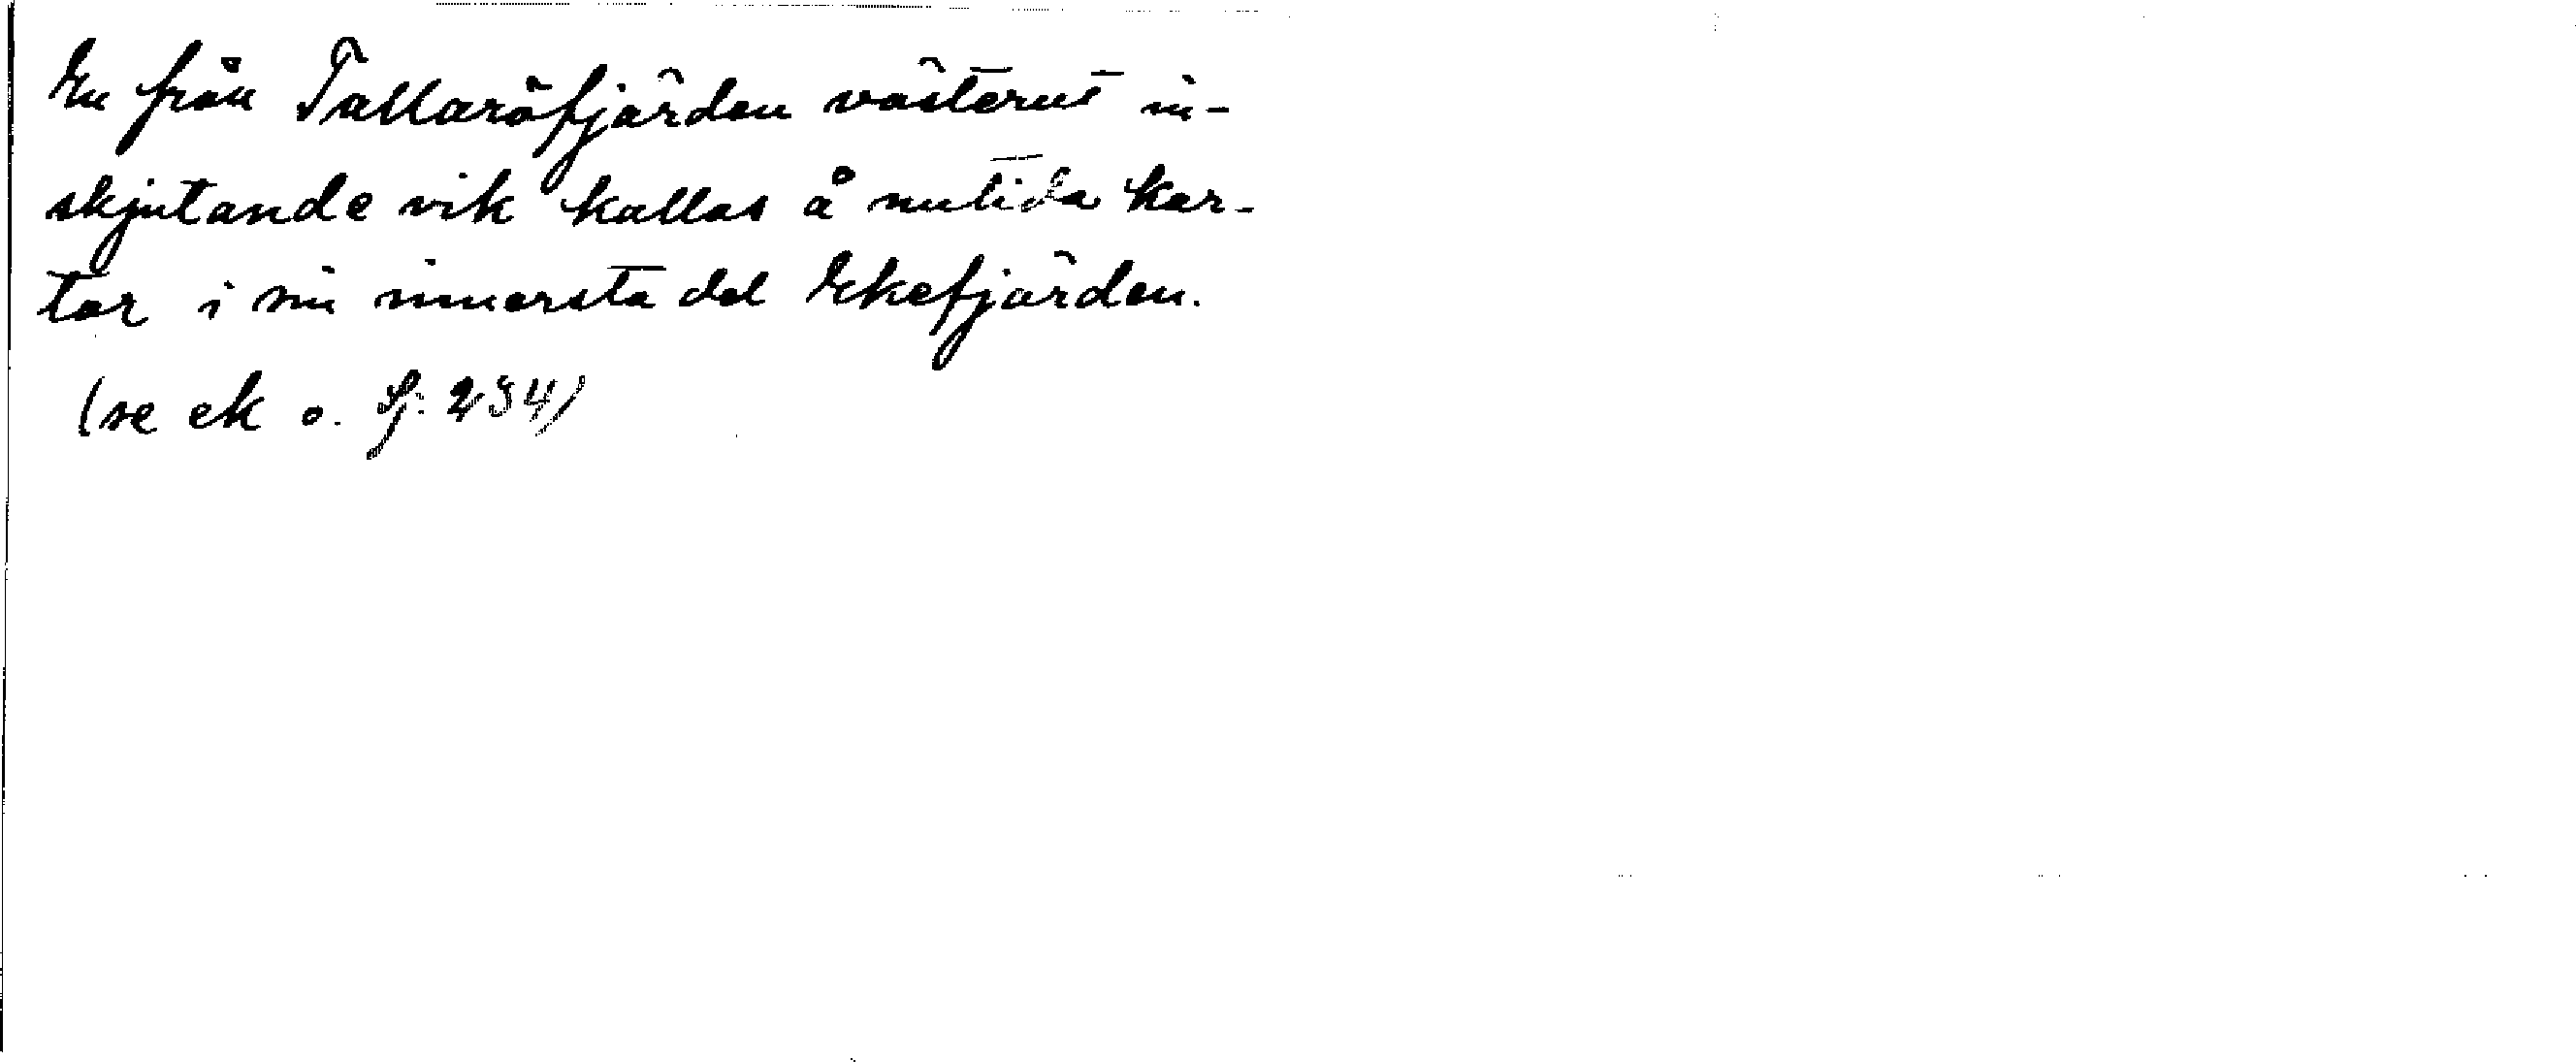 En från Tallaröfjärden västerut in-
skjutande vik kallas å nutida kar-
tor i sin innersta del Ekefjärden.
(se ek o. Sj. 234)